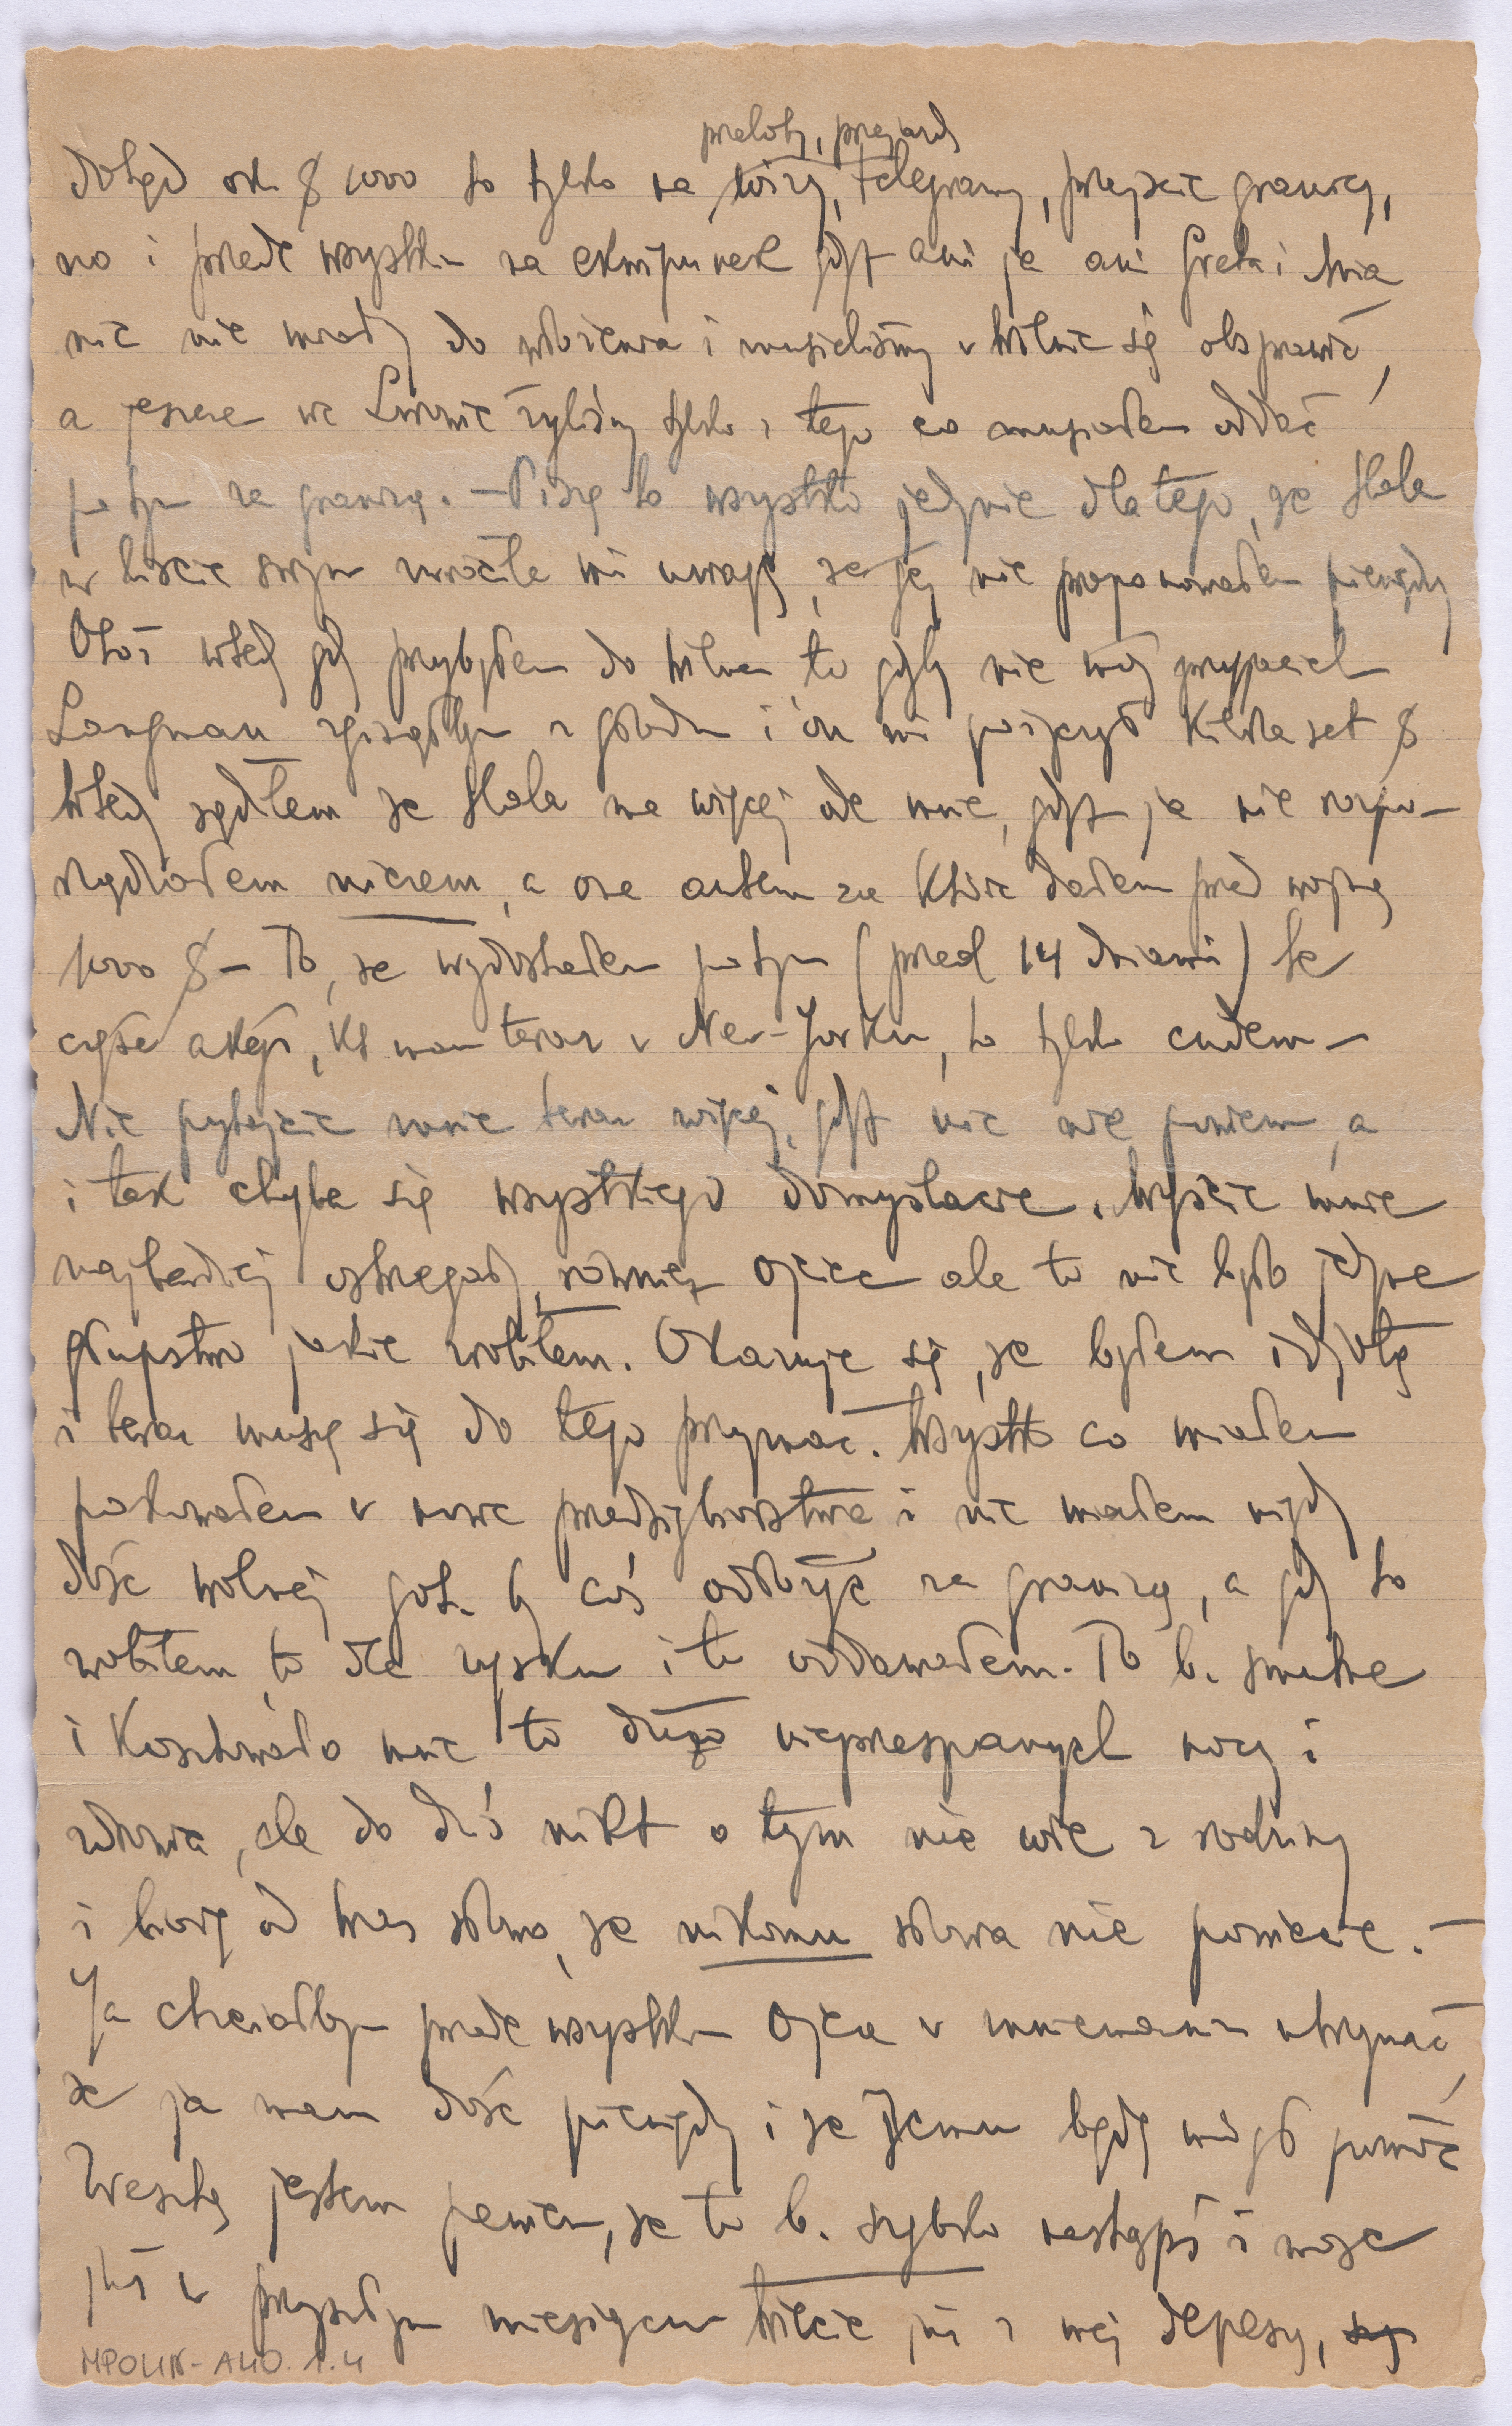 przeloty, przejazdy
dotąd ok. $ 1000 to tylko na wizy, telegramy, przejście granicy,
no i przede wszystkim na ekwipunek gdyż ani ja ani Greta i
nic nie mieli do włożenia i musieliśmy w Wilnie się obsprawić,
a jeszcze we Lwowie żyliśmy tylko z tego co musiałem oddać
potym za granicą. – Piszę to wszystko jedynie dlatego, że Hala
w liście swym zwróciła mi uwagę, że jej nie proponowałem pieniędzy
Otóż wtedy gdy przybyłem do Wilna, to gdyby nie mój przyjaciel
Langman zginąłbym z głodu i on mi pożyczył kilkaset $
Wtedy sądziłem że Hala ma więcej ode mnie, gdyż ja nie rozpo-
rządzałem niczem, a ona autem za które dałem przed wojną
1000 $ – To, że wydostałem potym (przed 14 dniami) te
część akcji, kt mam teraz w New-Jorku, to tylko cudem –
Nie pytajcie mnie teraz więcej, gdyż nic nie powiem, a
i tak chyba się wszystkiego domyślacie. Wyście mnie
najbardziej ostrzegali, również Ojciec ale to nie było jedyne
głupstwo jakie zrobiłem. Okazuje się, że byłem idjotą
i teraz muszę się do tego przyznać. Wszystko co miałem
pakowałem w nowe przedsiębiorstwa i nie miałem nigdy
dość wolnej got. by coś odłożyć za granicą, a gdy to
zrobiłem, to dla zysku i to oddawałem. To b. smutne
i kosztowało mnie to dużo nieprzespanych nocy i
zdrowia, ale do dziś nikt o tym nie wie z rodziny
i biorę od Was słowo, że nikomu słowa nie powiecie. –
Ja chciałbym przede wszystkim Ojca w mniemaniu utrzymać,
że ja mam dość pieniędzy i że Jemu będę mógł pomóc
Zresztą jestem pewien, że to b. szybko nastąpi i może
już w przyszłym miesiącu wiecie już z mej depeszy,
MPOLIN-A40.1.4